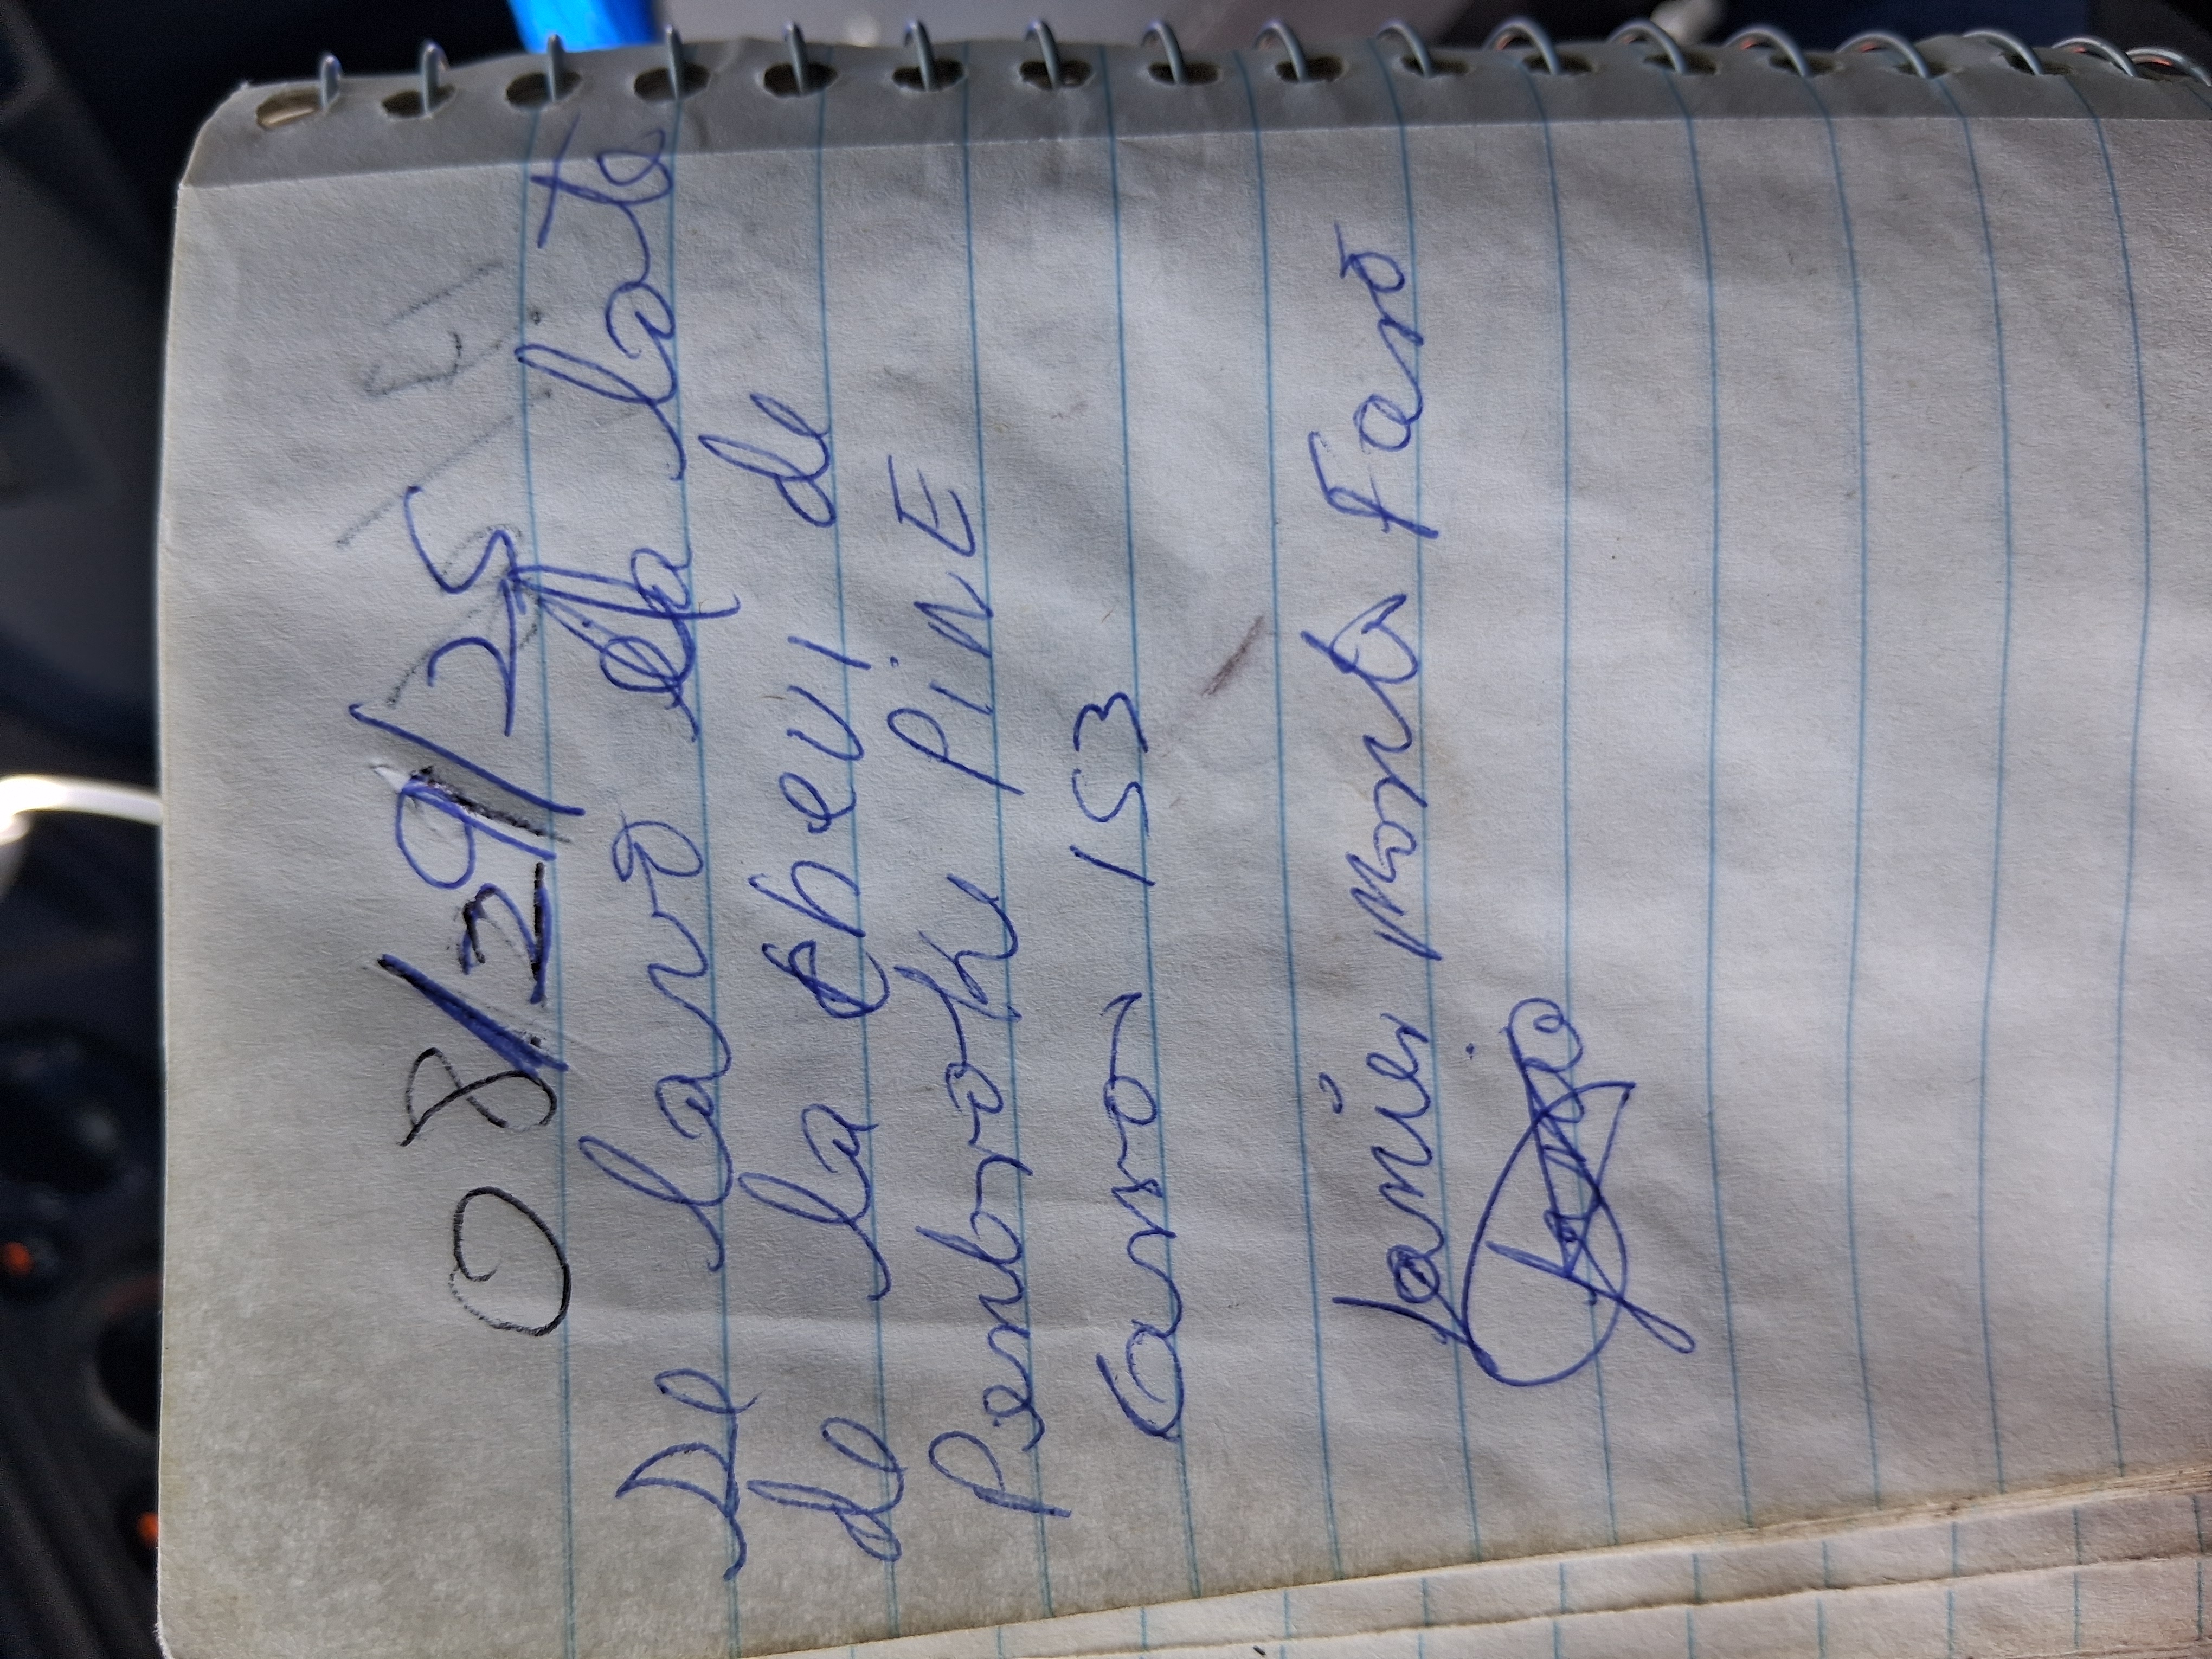 08/29/25
Se lavó la late
de la chevi de
Penbroth PinE
Carro 153
Javier Monts Faro